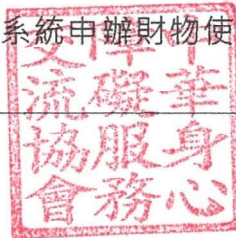 系統申辦財物使
中華身心
障礙服務
交流協會